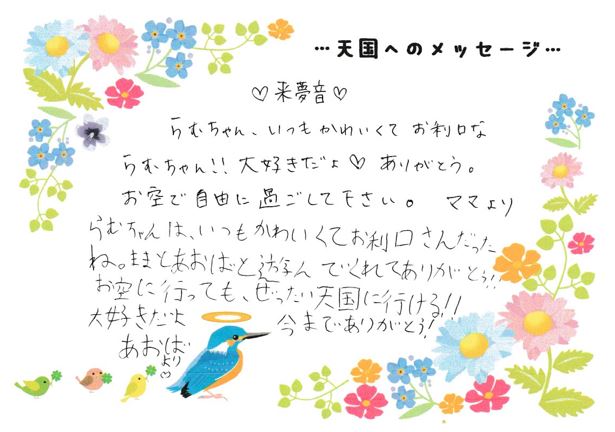 …天国へのメッセージ…
♡来夢音♡
らむちゃん、いつもかわいくてお利口な
らむちゃん!!大好きだよ♡ありがとう。
お空で自由に過ごして下さい。 ママより
らむちゃんは、いつもかわいくてお利口さんだった
ね。ままとあおばと遊んでくれてありがとう!!
お空に行っても、ぜったい天国に行ける!!
大好きだよ 今までありがとう!
あおばより♡